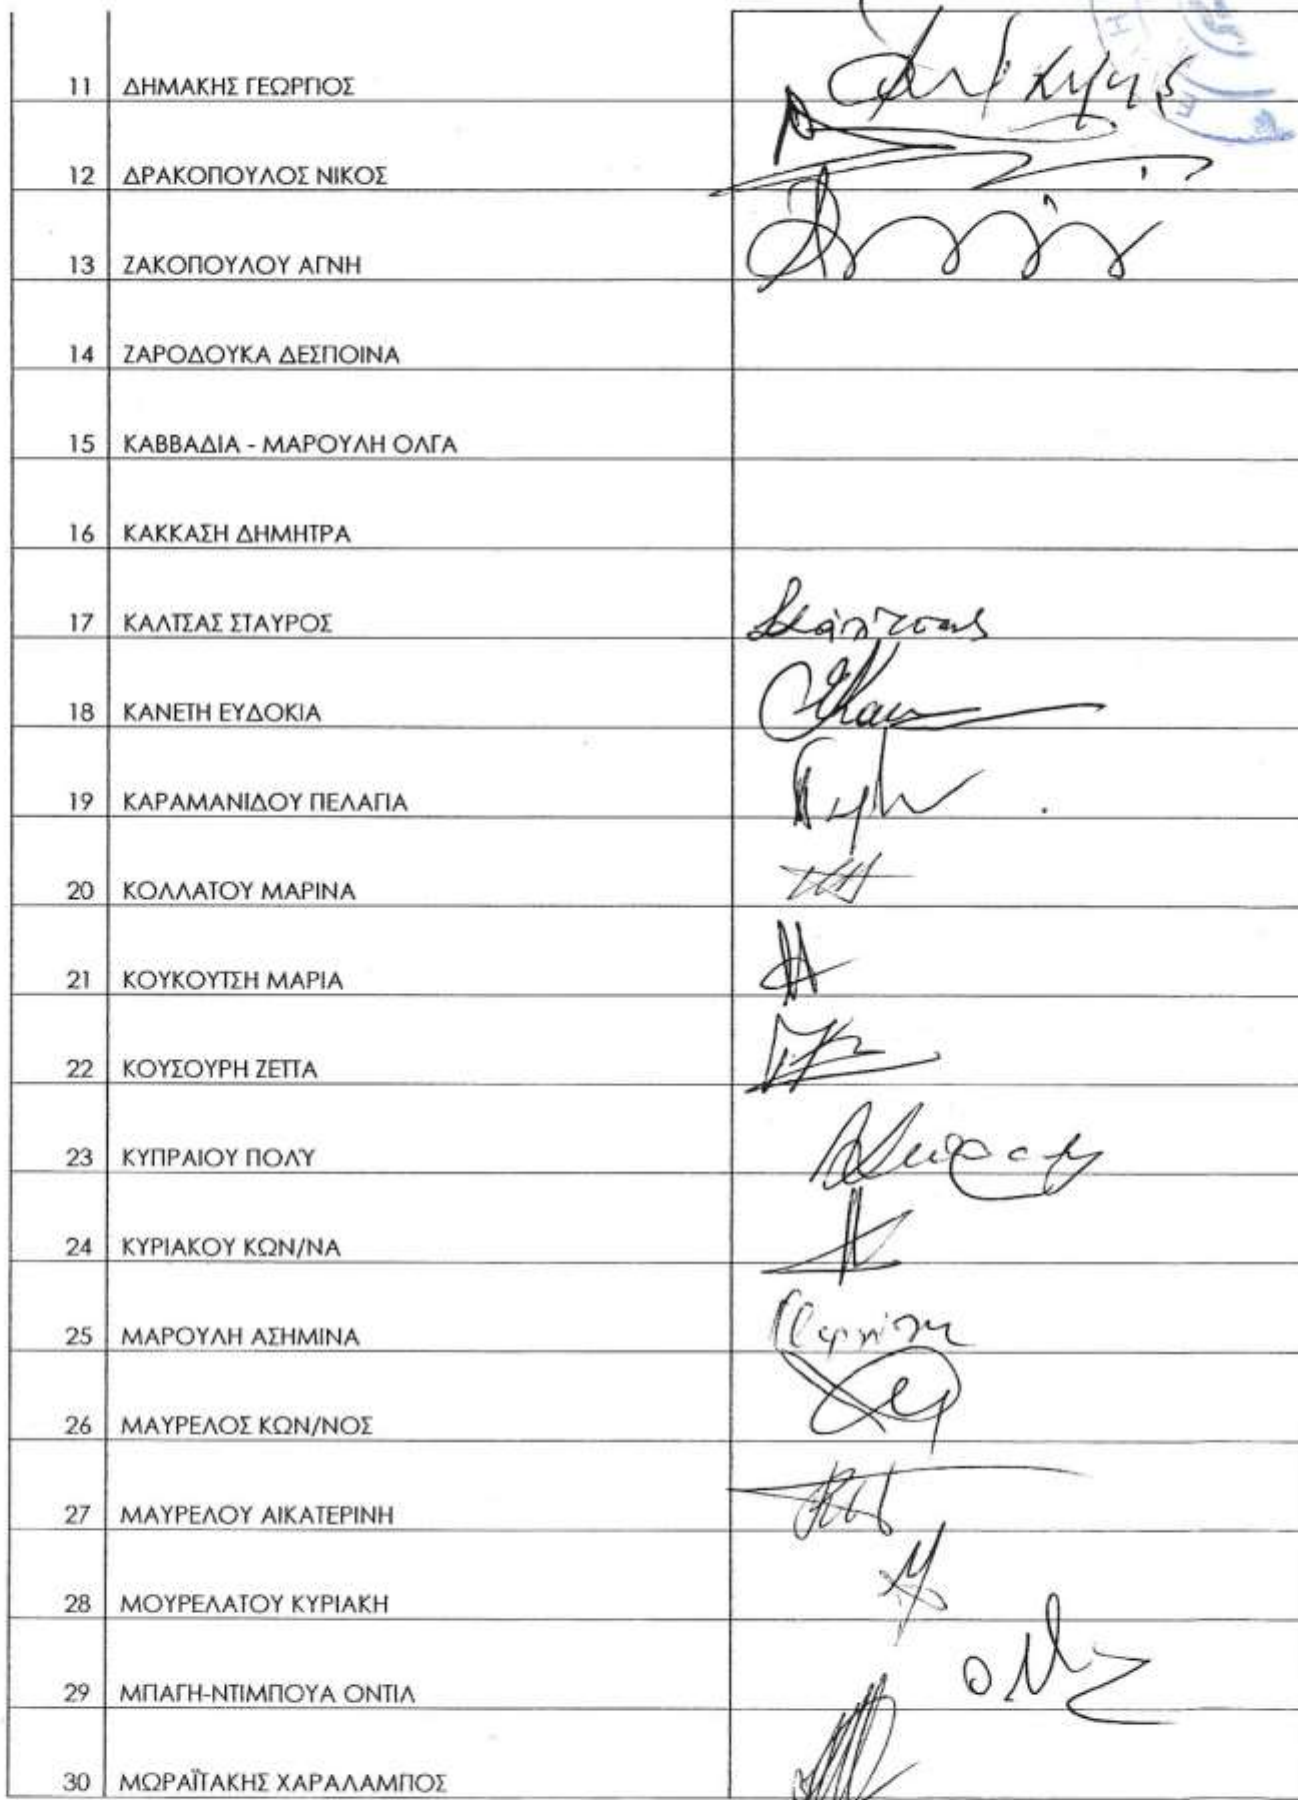 11 ΔΗΜΑΚΗΣ ΓΕΩΡΓΙΟΣ
12 ΔΡΑΚΟΠΟΥΛΟΣ ΝΙΚΟΣ
13 ΖΑΚΟΠΟΥΛΟΥ ΑΓΝΗ
14 ΖΑΡΟΔΟΥΚΑ ΔΕΣΠΟΙΝΑ
15 ΚΑΒΒΑΔΙΑ - ΜΑΡΟΥΛΗ ΟΛΓΑ
16 ΚΑΚΚΑΣΗ ΔΗΜΗΤΡΑ
17 ΚΑΛΤΣΑΣ ΣΤΑΥΡΟΣ
18 ΚΑΝΕΤΗ ΕΥΔΟΚΙΑ
19 ΚΑΡΑΜΑΝΙΔΟΥ ΠΕΛΑΓΙΑ
20 ΚΟΛΛΑΤΟΥ ΜΑΡΙΝΑ
21 ΚΟΥΚΟΥΤΣΗ ΜΑΡΙΑ
22 ΚΟΥΣΟΥΡΗ ΖΕΤΤΑ
23 ΚΥΠΡΑΙΟΥ ΠΟΛΥ
24 ΚΥΡΙΑΚΟΥ ΚΩΝ/ΝΑ
25 ΜΑΡΟΥΛΗ ΑΣΗΜΙΝΑ
26 ΜΑΥΡΕΛΟΣ ΚΩΝ/ΝΟΣ
27 ΜΑΥΡΕΛΟΥ ΑΙΚΑΤΕΡΙΝΗ
28 ΜΟΥΡΕΛΑΤΟΥ ΚΥΡΙΑΚΗ
29 ΜΠΑΓΗ-ΝΤΙΜΠΟΥΑ ΟΝΤΙΛ
30 ΜΩΡΑΪΤΑΚΗΣ ΧΑΡΑΛΑΜΠΟΣ